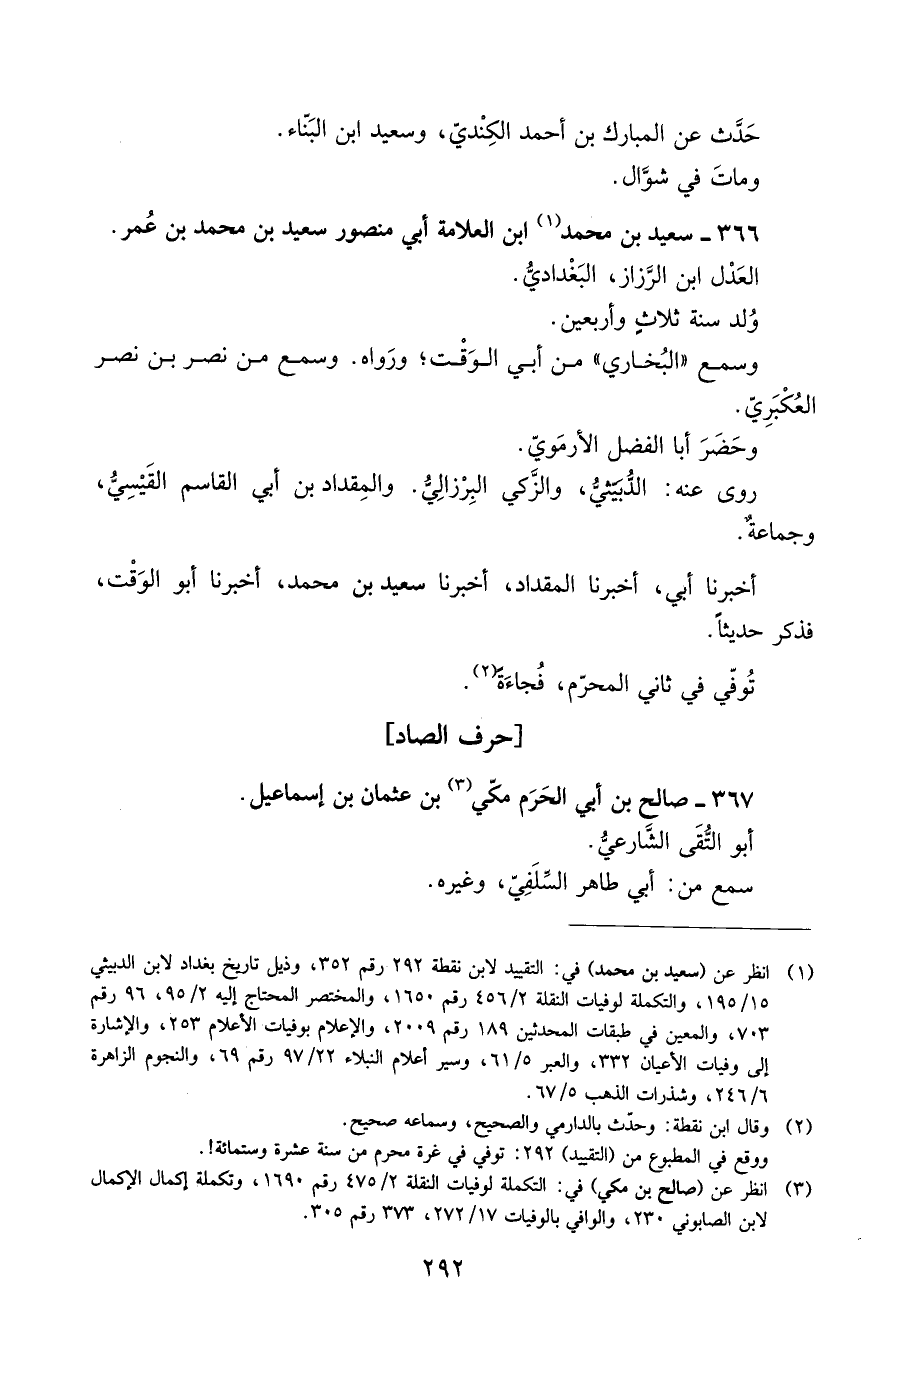 حَدَّث عن المبارك بن أحمد الكِنْديّ، وسعيد ابن البَنّاء.
وماتَ في شوَّال.
٣٦٦ ـ سعيد بن محمد(١) ابن العلامة أبي منصور سعيد بن محمد بن عُمر.
العَدْل ابن الرَّزاز، البَغْداديُّ.
وُلد سنة ثلاثٍ وأربعين.
وسمع «البُخاري» من أبي الوَقْت؛ ورَواه. وسمع من نصر بن نصر
العُكْبَرِيّ.
وحَضَرَ أبا الفضل الأرمَويّ.
روى عنه: الدُّبَيْثيُّ، والزَّكي البِرْزاليُّ. والمِقداد بن أبي القاسم القَيْسِيُّ،
وجماعةٌ.
أخبرنا أبي، أخبرنا المقداد، أخبرنا سعيد بن محمد، أخبرنا أبو الوَقْت،
فذكر حديثاً.
تُوفّي في ثاني المحرّم، فُجاءَةً(٢).
[حرف الصاد]
٣٦٧ ـ صالح بن أبي الحَرَم مكّي(٣) بن عثمان بن إسماعيل.
أبو التُّقَى الشَّارعيُّ.
سمع من: أبي طاهر السِّلَفِيّ، وغيره.
(١) انظر عن (سعيد بن محمد) في: التقييد لابن نقطة ٢٩٢ رقم ٣٥٢، وذيل تاريخ بغداد لابن الدبيثي
١٩٥/١٥، والتكملة لوفيات النقلة ٤٥٦/٢ رقم ١٦٥٠، والمختصر المحتاج إليه ٩٥/٢، ٩٦ رقم
٧٠٣، والمعين في طبقات المحدثين ١٨٩ رقم ٢٠٠٩، والإعلام بوفيات الأعلام ٢٥٣، والإشارة
إلى وفيات الأعيان ٣٣٢، والعبر ٦١/٥، وسير أعلام النبلاء ٩٧/٢٢ رقم ٦٩، والنجوم الزاهرة
٢٤٦/٦، وشذرات الذهب ٦٧/٥.
(٢) وقال ابن نقطة: وحدّث بالدارمي والصحيح، وسماعه صحيح.
ووقع في المطبوع من (التقييد) ٢٩٢: توفي في غرة محرم من سنة عشرة وستمائة!.
(٣) انظر عن (صالح بن مكي) في: التكملة لوفيات النقلة ٤٧٥/٢ رقم ١٦٩٠، وتكملة إكمال الإكمال
لابن الصابوني ٢٣٠، والوافي بالوفيات ٢٧٢/١٧، ٣٧٣ رقم ٣٠٥.
٢٩٢